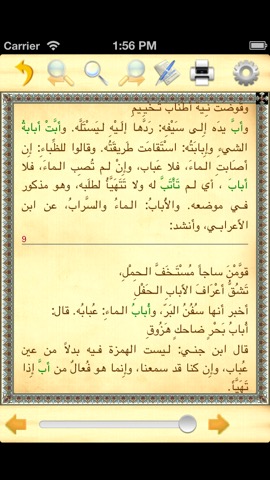 Carrier 1:56 PM
وقوضت نيه أطناب تخييم
وأبَّ يده إلى سَيْفه: رَدَّها إلَيْه ليَسْتَلَّه. وأَبَّتْ أبابةُ
الشيءِ وإبابَتُه: اسْتَقامَت طريقَتُه. وقالوا للظِّباءِ: إن
أصابَتِ الماءَ، فلا عَباب، وإنْ لم تُصِبِ الماءَ، فلا
أبابَ ، أي لم تَأْتَبَّ له ولا تَتَهيَّأ لطلَبه، وهو مذكور
في موضعه. والأُبابُ: الماءُ والسَّرابُ، عن ابن
الأعرابي، وأنشد:
9
قَوَّمْنَ ساجاً مُسْتَخَفَّ الحمْلِ،
تَشُقُّ أعْرَافَ الأبابِ الحَفْلِ
أخبر أنها سُفُنُ البَرِّ، وأُبابُ الماءِ: عُبابُه. قال:
أُبابُ بَحْرٍ ضاحِكٍ هَزُوقِ
قال ابن جني: ليست الهمزة فيه بدلاً من عين
عُباب، وإن كنا قد سمعنا، وإنما هو فُعالٌ من أبَّ إذا
تَهَيَّأَ.